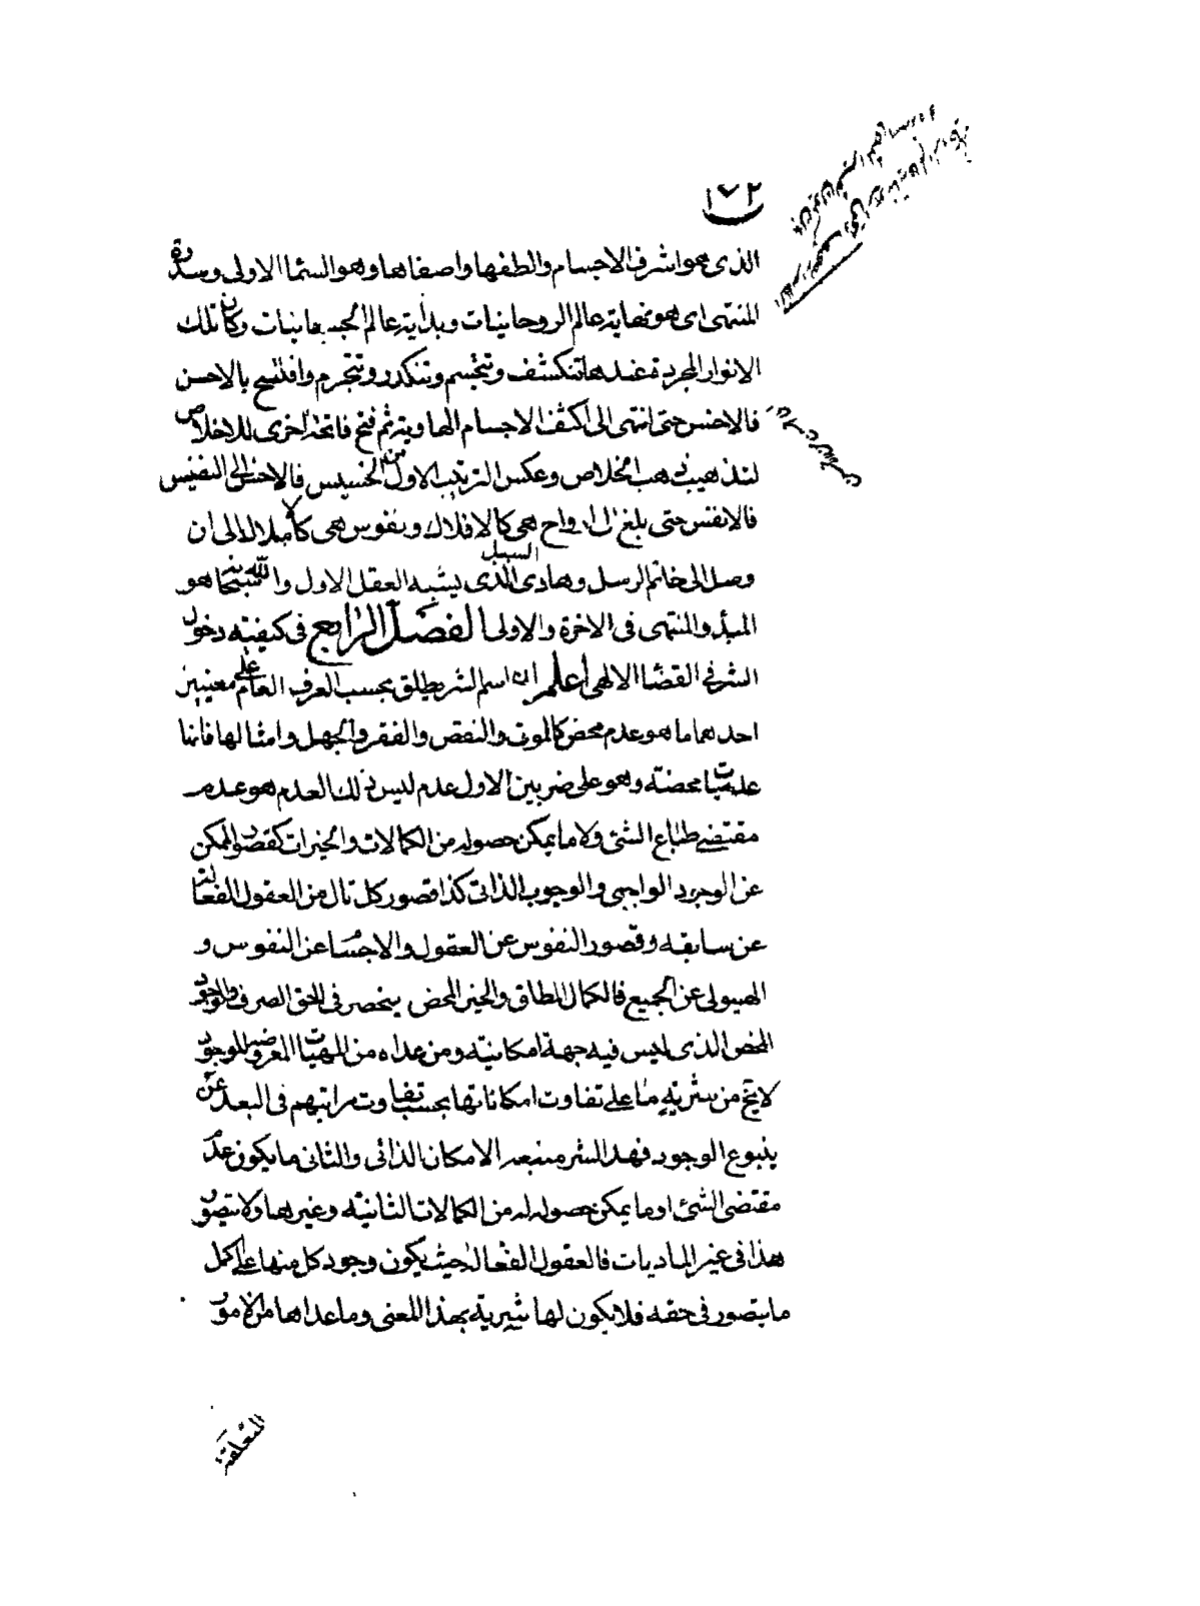 ١٧٢
الذى هو اشرف الاجسام والطفها واصفاها وهو السما الاولى وسدرة
المنتهى اى هو نهاية عالم الروحانيات وبداية عالم الجسمانيات وكان تلك
الانوار المجردة عندها تتكشف وتتجسم وتتكدر وتتجرم وافتتح بالاحسن
فالاخس حتى انتهى الى اكثف الاجسام الهاوية ثم فتح فاتحة اخرى للاخلاص
لتذهيب ذهب الخلاص وعكس الترتيب الاول من الخسيس فالاخس الى النفيس
فالانفس حتى بلغ الى ارواح هى كالافلاك ونفوس هى كالاملاك الى ان
وصل الى خاتم الرسل وهادى السبيل الذى يشبه العقل الاول والله سبحانه هو
المبدأ والمنتهى فى الاخرة والاولى الفصل الرابع فى كيفية دخول
الشر فى القضا الالهى اعلم ان اسم الشر يطلق بحسب العرف العام على معنيين
احدهما ما هو عدم محض كالموت والنقص والفقر والجهل وامثالها فانها
عدميات محضة وهو على ضربين الاول عدم ليس ذلك العدم هو عدم
مقتضى طباع الشئ ولا ما يمكن حصوله من الكمالات والخيرات كقصور الممكن
عن الوجود الواجبى والوجوب الذاتى كذا قصور كل تال من العقول الفعالة
عن سابقه وقصور النفوس عن العقول والاجسام عن النفوس و
الهيولى عن الجميع فالكمال المطلق والخير المحض ينحصر فى الحق الصرف والوجود
المحض الذى ليس فيه جهة امكانية ومن عداه من المهيات المعروضة للوجود
لا يخ من شرية ما على تفاوت امكاناتها بحسب تفاوت مراتبهم فى البعد عن
ينبوع الوجود فهذا الشر منبعه الامكان الذاتى والثانى ما يكون عدم
مقتضى الشئ او ما يمكن حصوله له من الكمالات الثانية وغيرها ولا يتصور
هذا فى غير الماديات فالعقول الفعالة حيث يكون وجود كل منها على اكمل
ما يتصور فى حقه فلا يكون لها شرية بهذا المعنى وما عداها من الامور
المتعلقة